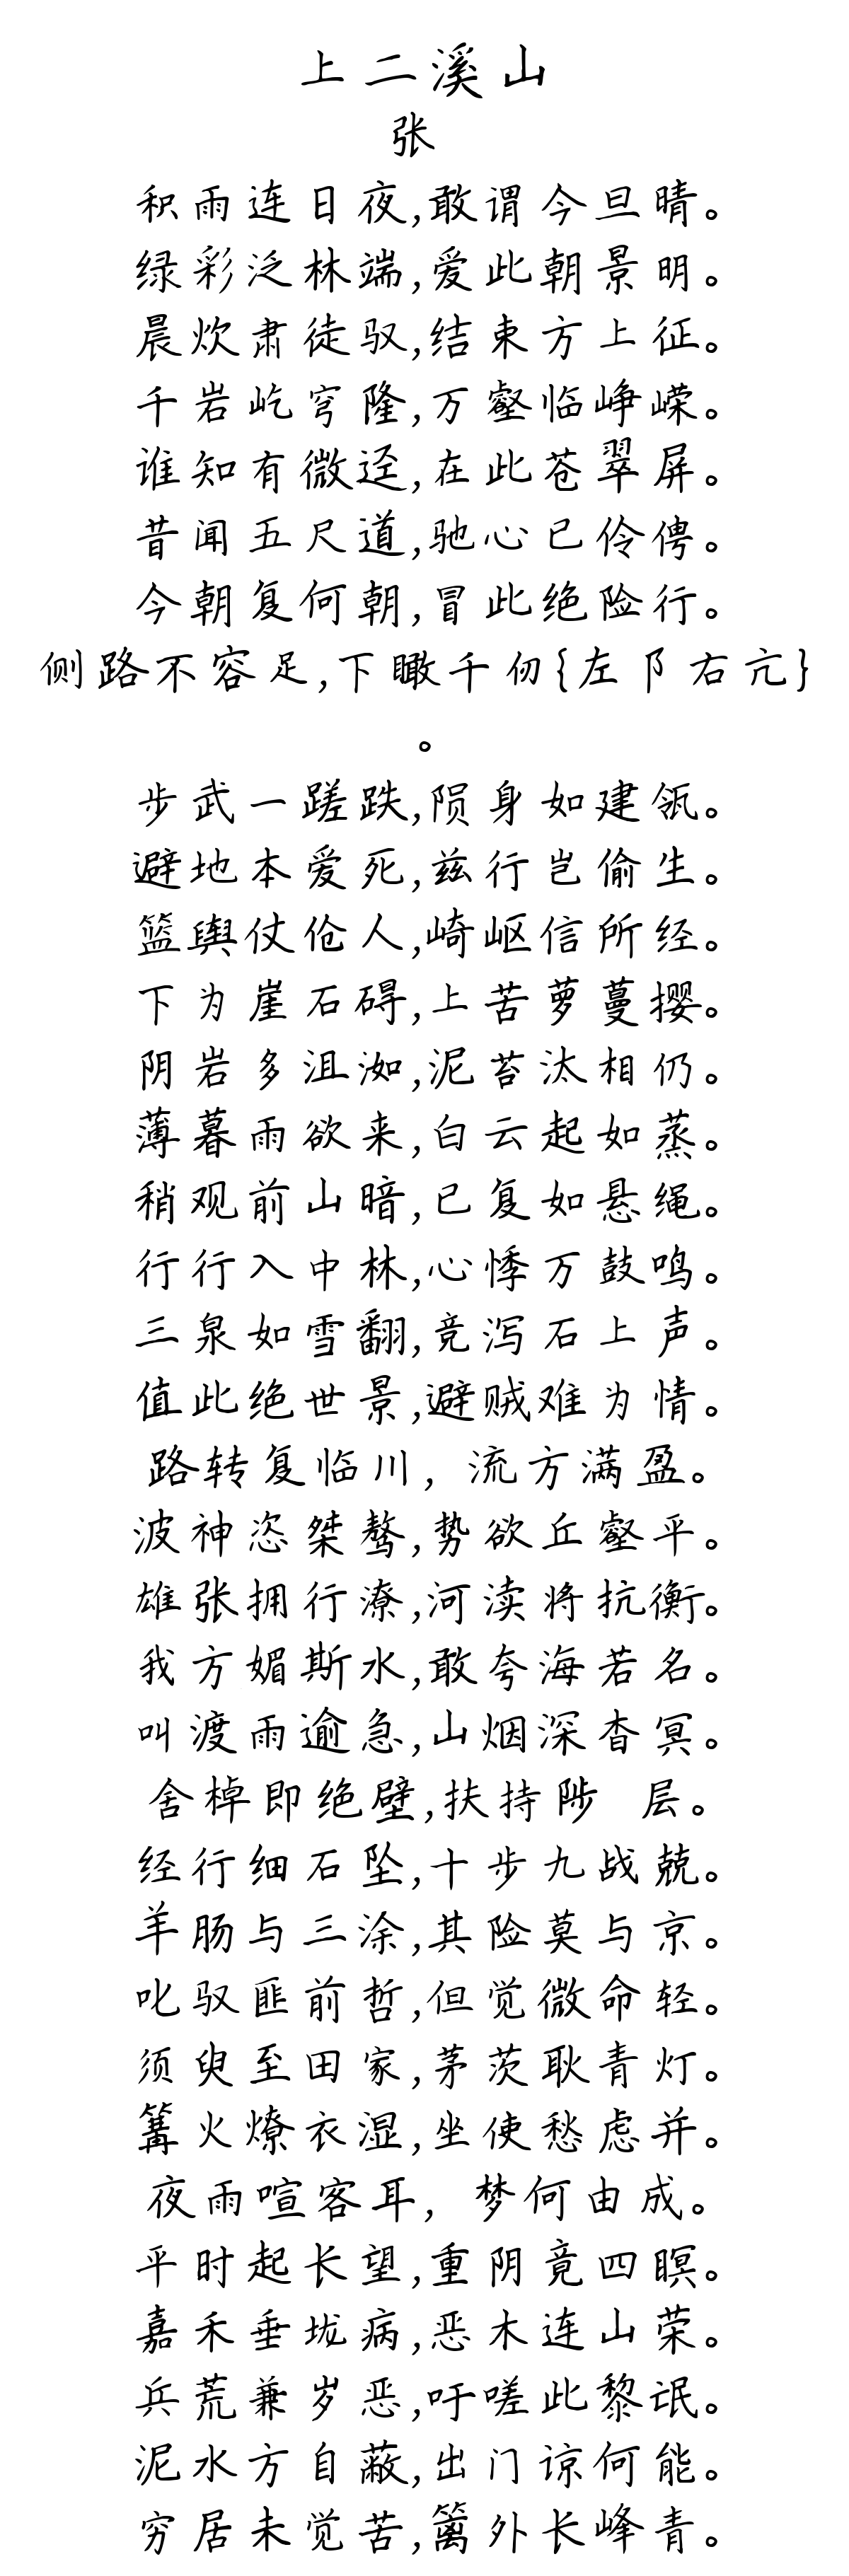 上二溪山
张
积雨连日夜,敢谓今旦晴。
绿彩泛林端,爱此朝景明。
晨炊肃徒驭,结束方上征。
千岩屹穹隆,万壑临峥嵘。
谁知有微迳,在此苍翠屏。
昔闻五尺道,驰心已伶俜。
今朝复何朝,冒此绝险行。
侧路不容足,下瞰千仞{左阝右亢}
。
步武一蹉跌,陨身如建瓴。
避地本爱死,兹行岂偷生。
篮舆仗伧人,崎岖信所经。
下为崖石碍,上苦萝蔓撄。
阴岩多沮洳,泥苔汰相仍。
薄暮雨欲来,白云起如蒸。
稍观前山暗,已复如悬绳。
行行入中林,心悸万鼓鸣。
三泉如雪翻,竞泻石上声。
值此绝世景,避贼难为情。
路转复临川, 流方满盈。
波神恣桀骜,势欲丘壑平。
雄张拥行潦,河渎将抗衡。
我方媚斯水,敢夸海若名。
叫渡雨逾急,山烟深杳冥。
舍棹即绝壁,扶持陟 层。
经行细石坠,十步九战兢。
羊肠与三涂,其险莫与京。
叱驭匪前哲,但觉微命轻。
须臾至田家,茅茨耿青灯。
篝火燎衣湿,坐使愁虑并。
夜雨喧客耳, 梦何由成。
平时起长望,重阴竟四瞑。
嘉禾垂垅病,恶木连山荣。
兵荒兼岁恶,吁嗟此黎氓。
泥水方自蔽,出门谅何能。
穷居未觉苦,篱外长峰青。